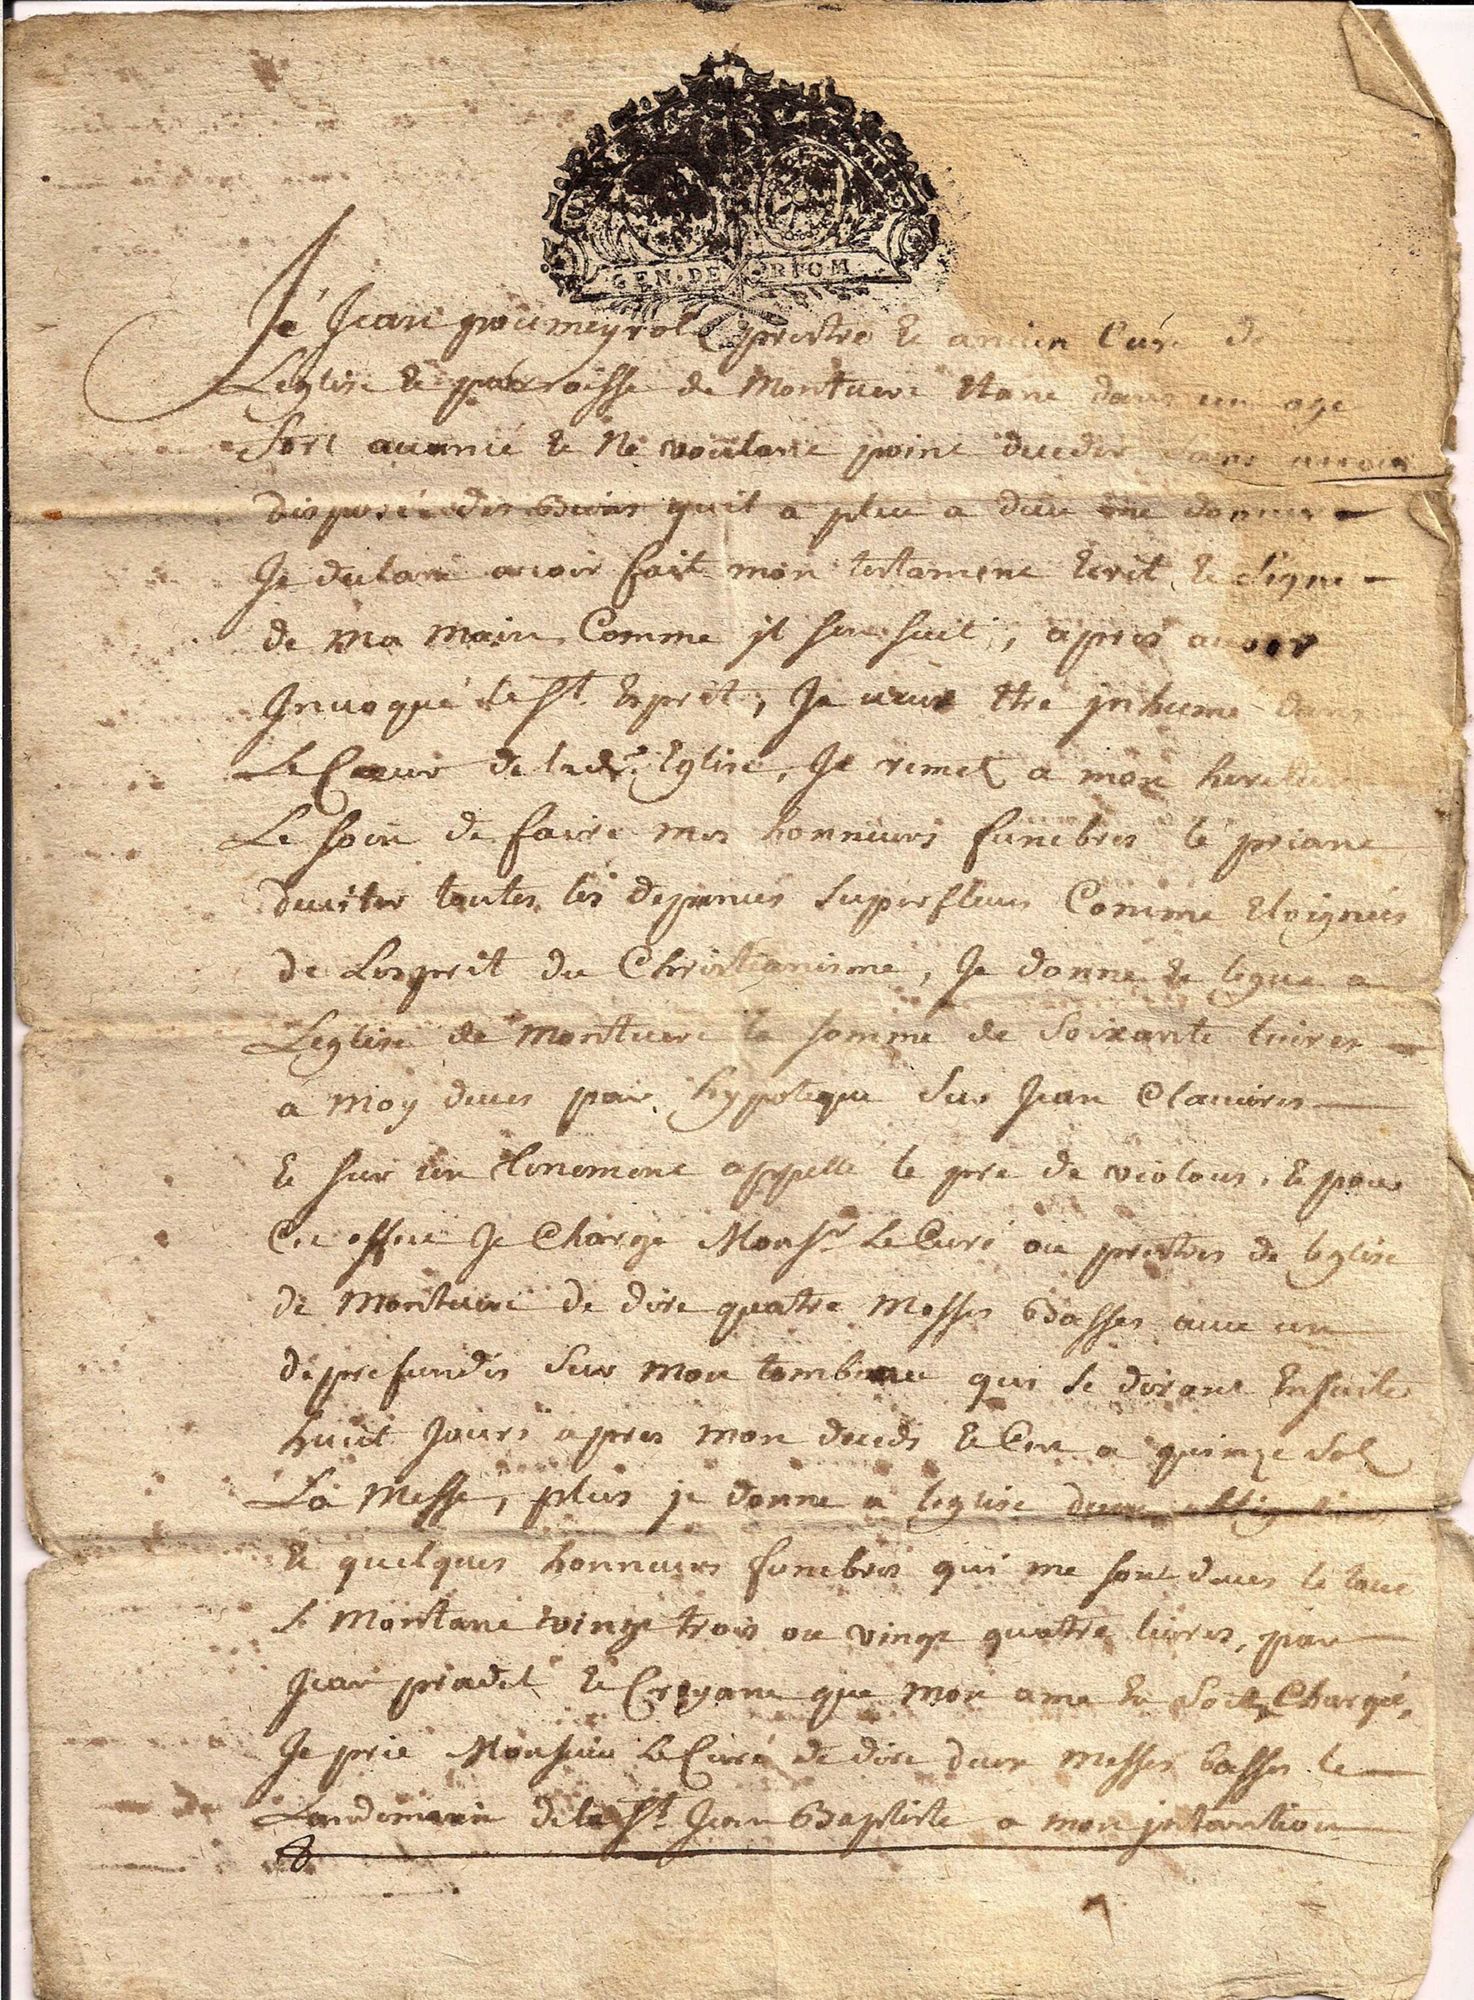 GEN · DE RIOM
Je Jean poumeyrol prestre et ancien Curé de
Leglise et parroisse de Montvert Etant dans un age
fort avancé et Ne voulant point deceder sans avoir
disposé des Biens quil a pleu a dieu me donner
Je declare avoir fait mon testament Ecrit et signé
de ma main Comme jl sen suit, apres avoir
Jnvoqué le St Esprit, Je veux Etre jnhumé dans
Le Cœur de lade Eglise, Je remet a mon heritier
Le soin de faire mes honneurs funebres le priant
deviter toutes les depences superflues Comme Eloignées
de Lesprit du Christianisme, Je donne et legue a
Leglise de Montvert la somme de soixante livres
a moy deues par hypoteque sur Jean Clavieres
et sur un tenement appellé le pre de violous, et pour
Cet effet Je Charge Monsr Le Curé ou prestres de leglise
de Montvert de dire quatre Messes Basses avec un
deprofundis sur mon tombeau qui se diront Ensuite
huit Jours apres mon deceds et Ce a quinze sol
La Messe, plus je donne a leglise dune obligation
et quelques honneurs funebres qui me sont deues le tout
se montant vingt trois ou vingt quatre livres, par
Jean pradel et Croyant que mon ame En soit Chargée,
Je prie Monsieur Le Curé de dire deux messes basses le
Landemain de la St Jean Baptiste a mon jntantion